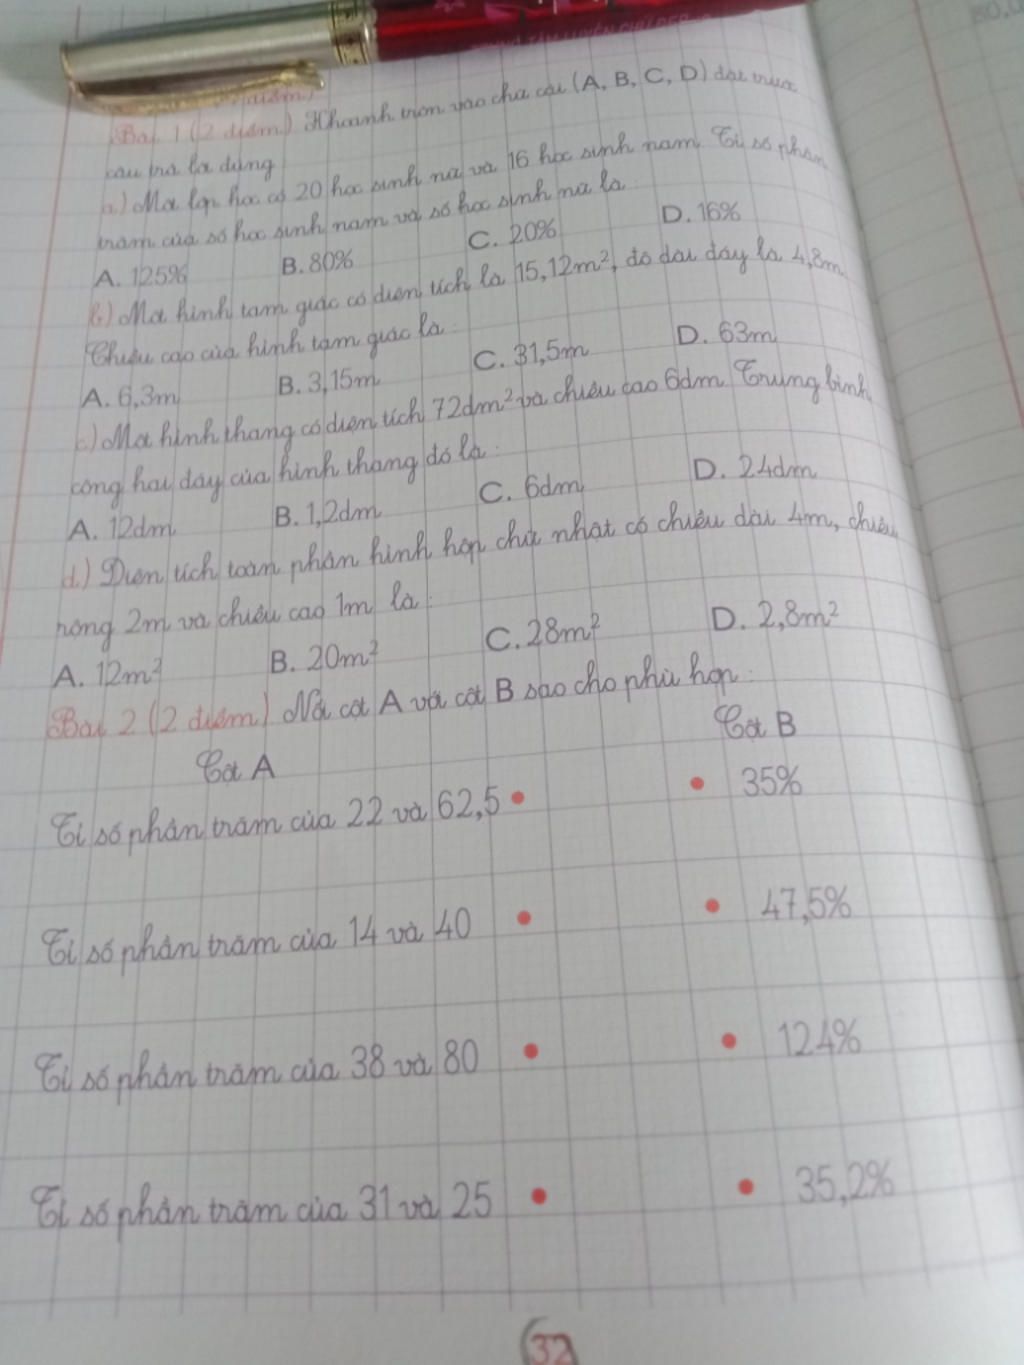 Bài 1 (2 điểm) Khoanh tròn vào chữ cái (A, B, C, D) đặt trước
câu trả lời đúng
a) Một lớp học có 20 học sinh nữ và 16 học sinh nam. Tỉ số phần
trăm của số học sinh nam và số học sinh nữ là:
A. 125% B. 80% C. 20% D. 16%
b) Một hình tam giác có diện tích là 15,12m², độ dài đáy là 4,8m.
Chiều cao của hình tam giác là:
A. 6,3m B. 3,15m C. 31,5m D. 63m
c) Một hình thang có diện tích 72dm² và chiều cao 6dm. Trung bình
cộng hai đáy của hình thang đó là:
A. 12dm B. 1,2dm C. 6dm D. 24dm
d) Diện tích toàn phần hình hộp chữ nhật có chiều dài 4m, chiều
rộng 2m và chiều cao 1m là:
A. 12m² B. 20m² C. 28m² D. 2,8m²
Bài 2 (2 điểm) Nối cột A với cột B sao cho phù hợp:
Cột A Cột B
Tỉ số phần trăm của 22 và 62,5 35%
Tỉ số phần trăm của 14 và 40 47,5%
Tỉ số phần trăm của 38 và 80 124%
Tỉ số phần trăm của 31 và 25 35,2%
32